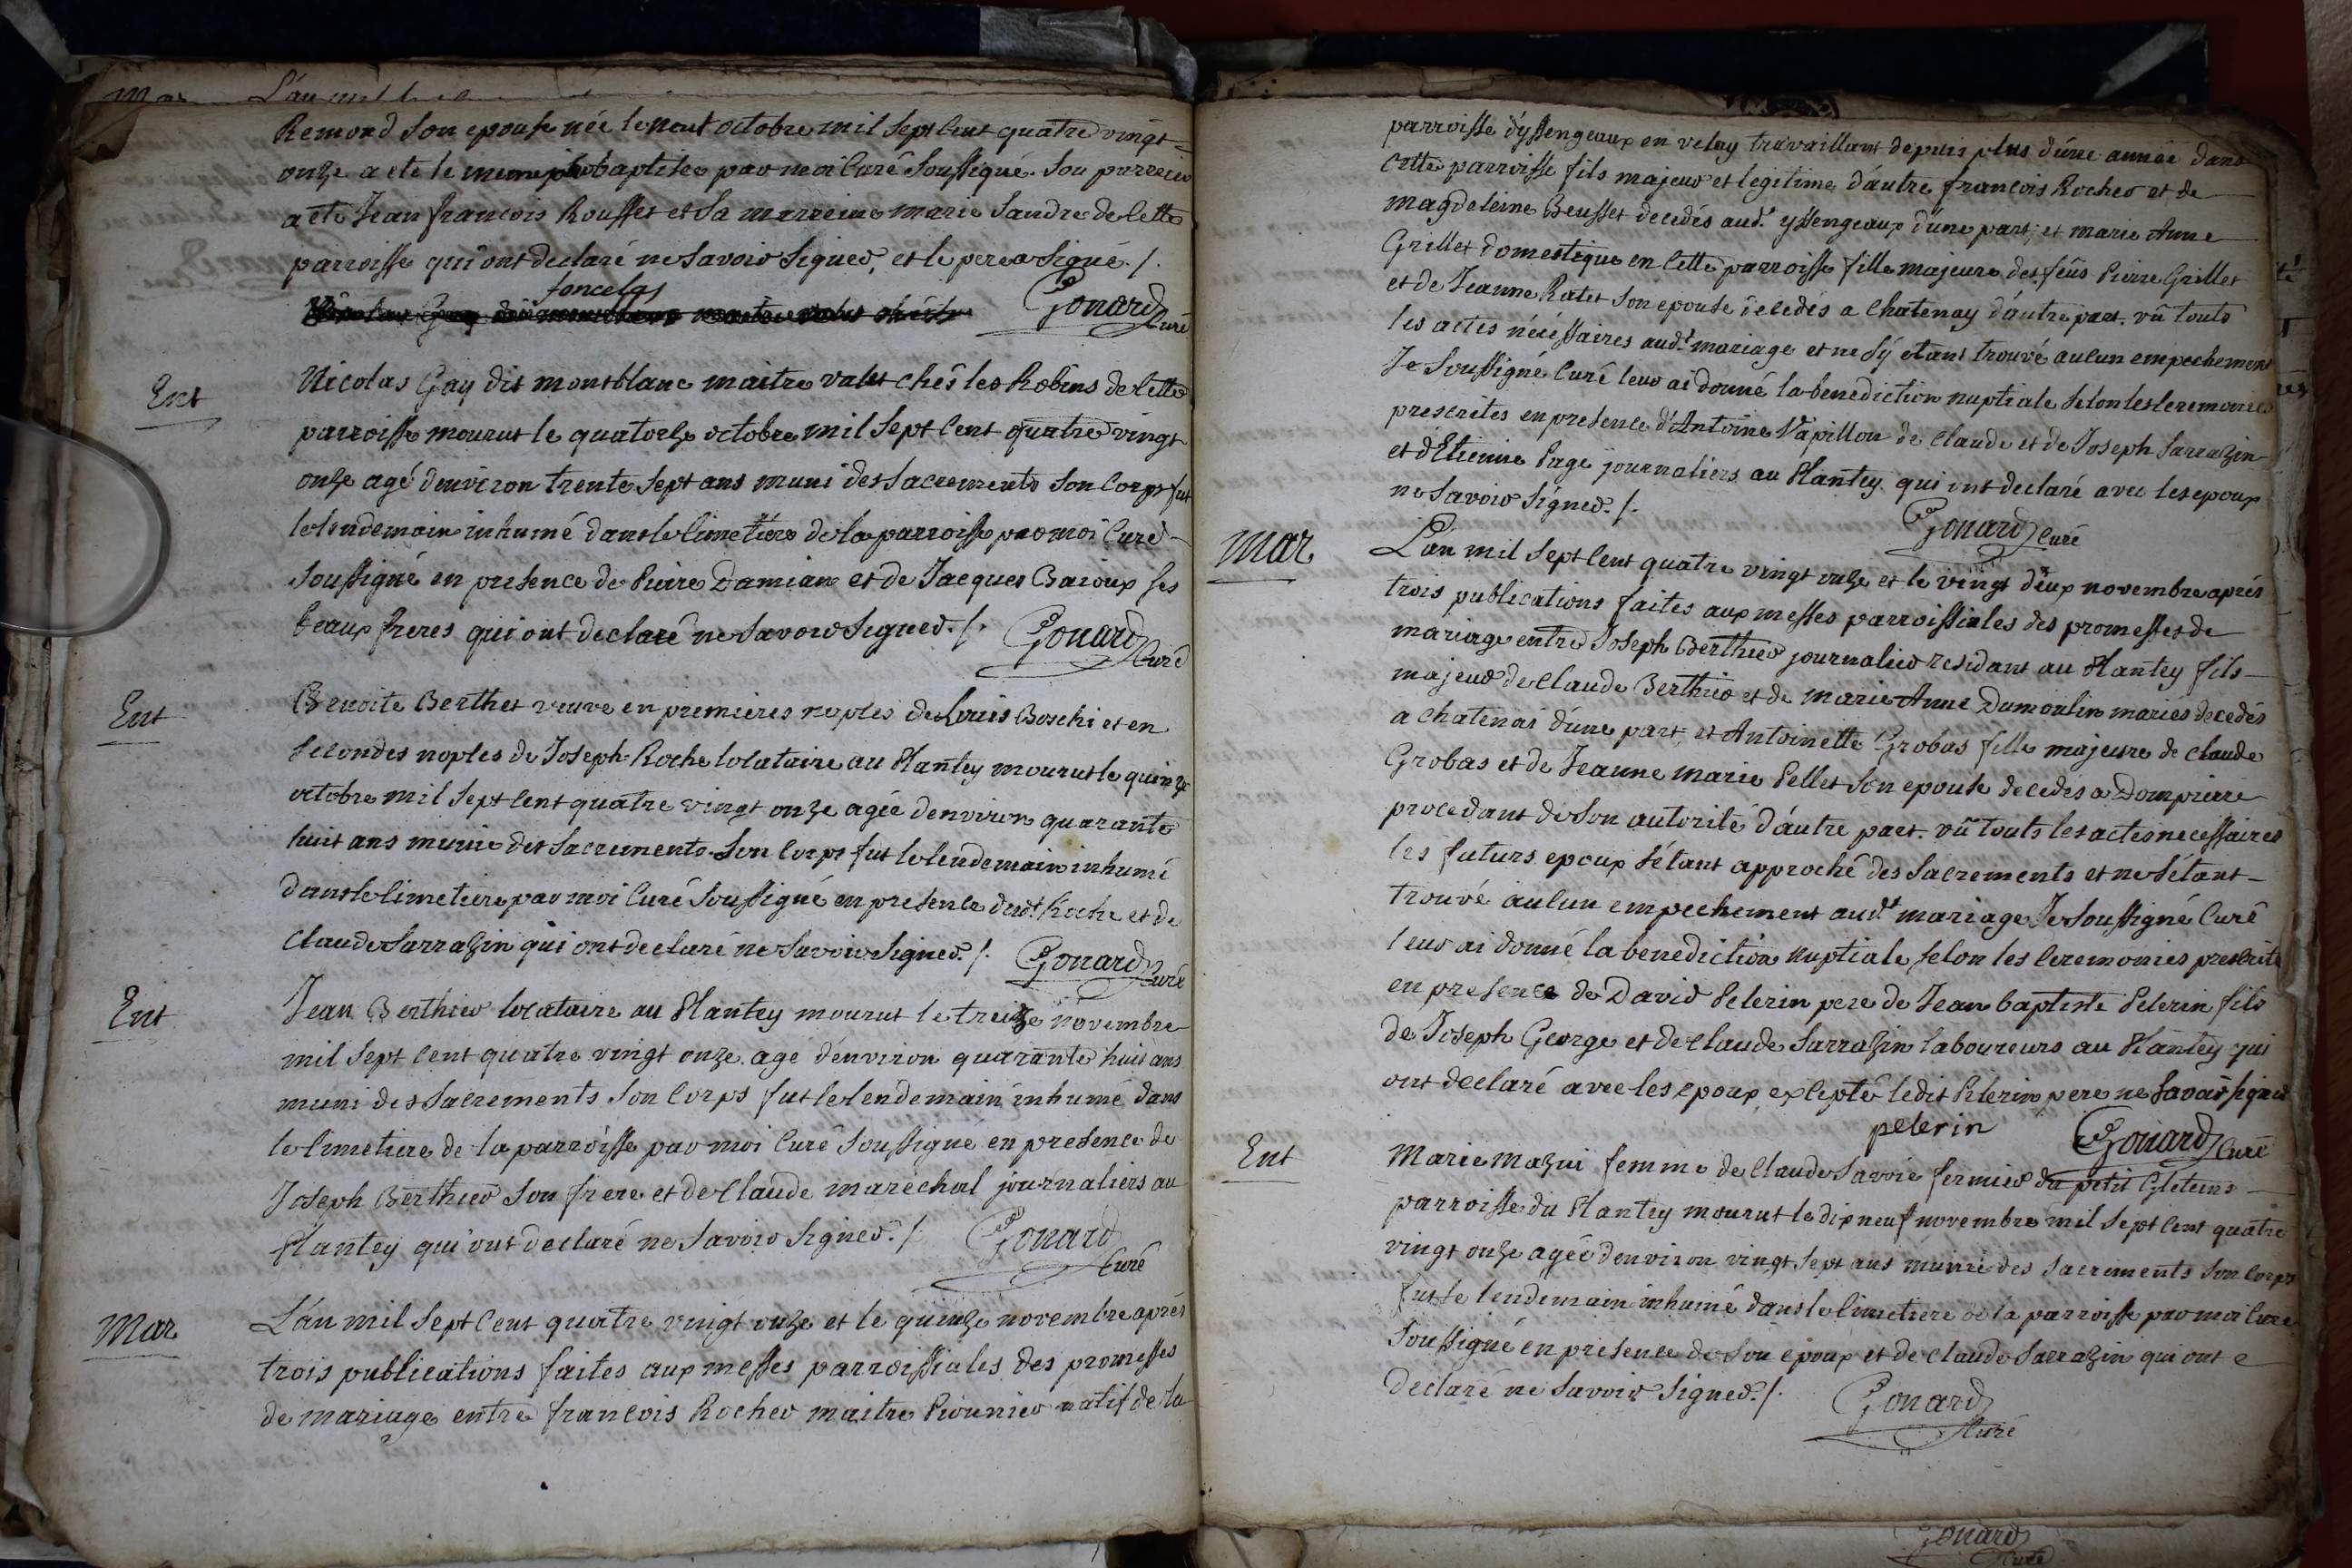 Mar L'an mil
Remond son epouse née le neuf octobre mil sept cent quatre vingt
onze a ete le meme jour baptisée par moi Curé soussigné. Son parrein
a ete Jean françois Rousset et sa marreine marie Sandre de cette
parroisse qui ont declaré ne savoir signer, et le pere a signé ./.
foncelas
Gonard Curé
Ent
Nicolas Gay dit montblanc maitre valet chés les Robins de cette
parroisse mourut le quatorze octobre mil sept cent quatre vingt
onze agé d'environ trente sept ans muni des sacrements son corps fut
le lendemain inhumé dans le cimetiére de la parroisse par moi Curé
soussigné en presence de Pierre Damian et de Jacques Baioux ses
beaux freres qui ont declaré ne savoir signer ./. Gonard Curé
Ent
Benoite Berthet veuve en premieres noples de Louis Boschi et en
secondes noples de Joseph Roche locataire au Plantey mourut le quinze
octobre mil sept cent quatre vingt onze agée d'environ quarante
huit ans munie des sacrements. Son corps fut le lendemain inhumé
dans le cimetiere par moi Curé soussigné en presence dudt Roche et de
Claude Sarrazin qui ont declaré ne savoir signer ./. Gonard Curé
Ent
Jean Berthier locataire au Plantey mourut le treize novembre
mil sept cent quatre vingt onze agé d'environ quarante huit ans
muni des sacrements son corps fut le lendemain inhumé dans
le cimetiere de la parroisse par moi Curé soussigné en presence de
Joseph Berthier son frere et de Claude marechal journaliers au
Plantey qui ont declaré ne savoir signer ./. Gonard
Curé
Mar
L'an mil sept cent quatre vingt onze et le quinze novembre aprés
trois publications faites aux messes parroissiales des promesses
de mariage entre françois Rocher maitre Pionnier natif de la
parroisse d'yssengeaux en velay travaillant depuis plus d'une année dans
cette parroisse fils majeur et legitime d'autre françois Rocher et de
magdeleine Beusset decedés audt yssengeaux d'une part; et marie Anne
Grillet domestique en cette parroisse fille majeure des feus Pierre Grillet
et de Jeanne Ratet son epouse decedés a chatenay d'autre part. vû touts
les actes nécessaires audt mariage et ne s'y etant trouvé aucun empechement
Je soussigné Curé leur ai donné la benediction nuptiale selon les ceremonies
prescrites en presence d'Antoine Vapillon de Claude et de Joseph Sarrazin
et d'Etienne Page journaliers au Plantey qui ont declaré avec les epoux
ne savoir signer ./. Gonard Curé
Mar
L'an mil sept cent quatre vingt onze et le vingt deux novembre aprés
trois publications faites aux messes parroissiales des promesses de
mariage entre Joseph Berthier journalier residant au Plantey fils
majeur de Claude Berthier et de marie Anne Dumoulin mariés decedés
a chatenai d'une part, et Antoinette Grobas fille majeure de Claude
Grobas et de Jeanne marie Pellet son epouse decedés a Dompierre
procedant de son autorité d'autre part. vû touts les actes necessaires
les futurs epoux s'étant approché des sacrements et ne s'étant
trouvé aucun empechement audt mariage Je soussigné Curé
leur ai donné la benediction nuptiale selon les ceremonies prescrite
en presence de David Pelerin pere de Jean baptiste Pelerin fils
de Joseph George et de Claude Sarrazin laboureurs au Plantey qui
ont declaré avec les epoux excepté ledit Pelerin pere ne savoir signer
pelerin Gonard Curé
Ent
Marie Mazui femme de Claude Savoie fermier du petit Gleteins
parroisse du Plantey mourut le dix neuf novembre mil sept cent quatre
vingt onze agée d'environ vingt sept ans munie des sacrements son corps
fut le lendemain inhumé dans le cimetiere de la parroisse par moi Curé
soussigné en presence de son epoux et de claude Sarrazin qui ont
declaré ne savoir signer ./. Gonard
Curé
Gonard
Curé